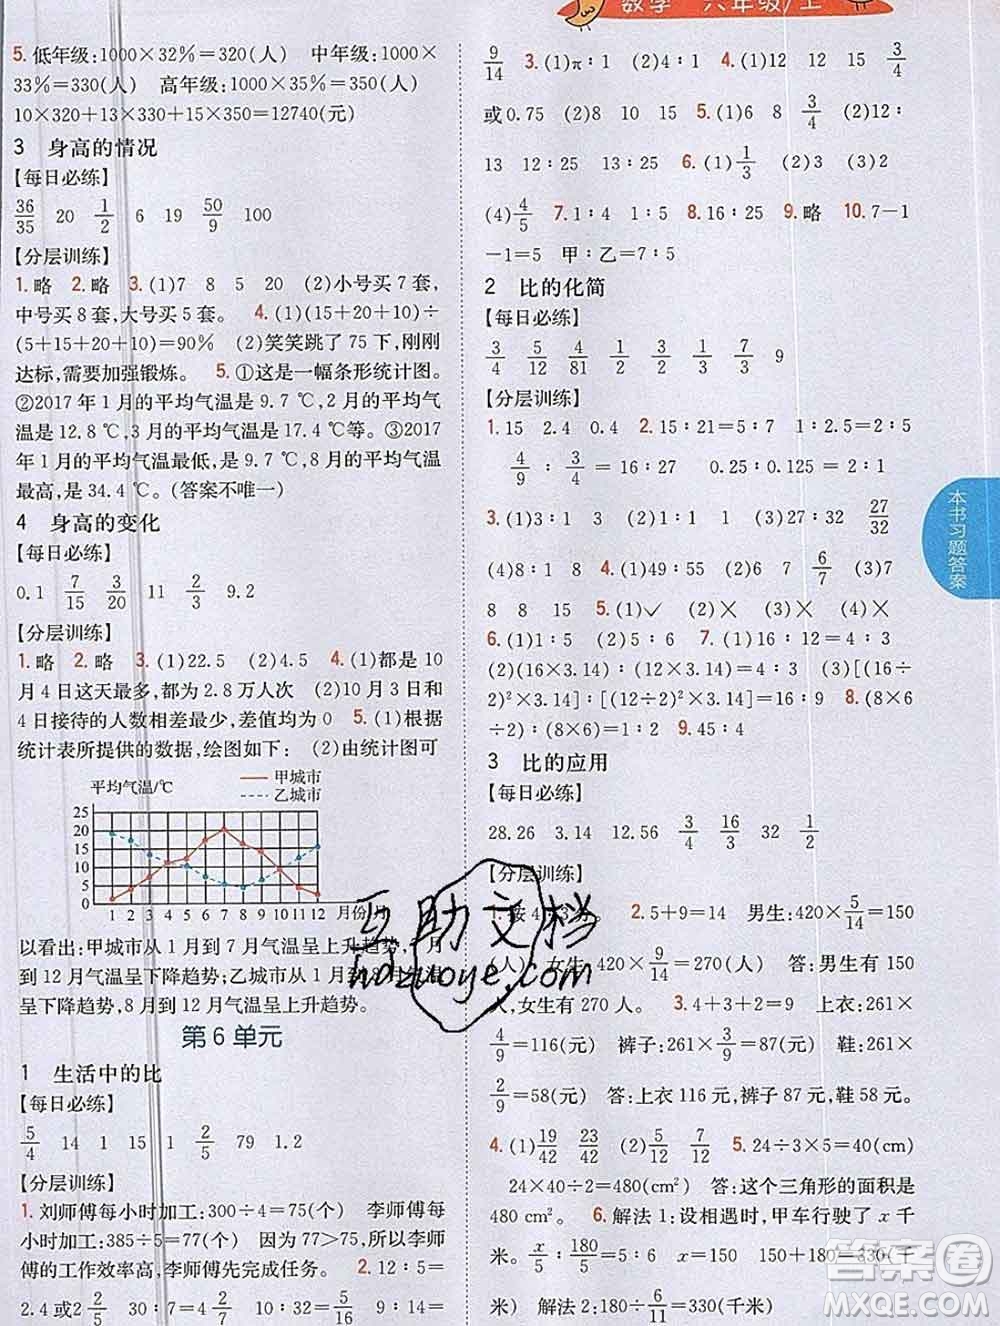 数学 六年级/上
5. 低年级:1000×32%=320(人) 中年级:1000×
33%=330(人) 高年级:1000×35%=350(人)
10×320+13×330+15×350=12740(元)
3 身高的情况
【每日必练】
36/35 20 1/2 6 19 50/9 100
【分层训练】
1. 略 2. 略 3. (1)7 8 5 20 (2)小号买 7 套,
中号买 8 套,大号买 5 套。 4. (1)(15+20+10)÷
(5+15+20+10)=90% (2)笑笑跳了 75 下,刚刚
达标,需要加强锻炼。 5. ①这是一幅条形统计图。
②2017 年 1 月的平均气温是 9.7 ℃,2 月的平均气
温是 12.8 ℃,3 月的平均气温是 17.4 ℃等。③2017
年 1 月的平均气温最低,是 9.7 ℃,8 月的平均气温
最高,是 34.4 ℃。(答案不唯一)
4 身高的变化
【每日必练】
0.1 7/15 3/20 11 2/3 9.2
【分层训练】
1. 略 2. 略 3. (1)22.5 (2)4.5 4. (1)都是 10
月 4 日这天最多,都为 2.8 万人次 (2)10 月 3 日和
4 日接待的人数相差最少,差值均为 0 5. (1)根据
统计表所提供的数据,绘图如下: (2)由统计图可
平均气温/℃ 甲城市
乙城市
25
20
15
10
5
0
1 2 3 4 5 6 7 8 9 10 11 12 月份/月
以看出:甲城市从 1 月到 7 月气温呈上升趋势,7 月
到 12 月气温呈下降趋势;乙城市从 1 月到 8 月气温
呈下降趋势,8 月到 12 月气温呈上升趋势。
第 6 单元
1 生活中的比
【每日必练】
5/4 14 1 15 1 2/5 79 1.2
【分层训练】
1. 刘师傅每小时加工:300÷4=75(个) 李师傅每
小时加工:385÷5=77(个) 因为 77>75,所以李师
傅的工作效率高,李师傅先完成任务。 2. 12:5=
2.4 或2 2/5 130:20=6.5 或6 1/2 5:16=5/16 10:144=
9/14 3. (1)π:1 (2)4:1 4. (1)12 12 15 3/4
或 0.75 (2)8 10 15 5. (1)6 8 3/4 (2)12:
13 12:25 13:25 6. (1)1/3 (2)3/4 (3)2
(4)4/5 7. 1:4 1:5 8. 4:25 9. 略 10. 7-1
-1=5 甲:乙=7:5
2 比的化简
【每日必练】
3/4 5/12 4/81 1/2 1/3 7/3 9
【分层训练】
1. 15 2.4 0.4 2. 15:21=5:7 1:2.5=2:5
4/9:3/4=16:27 0.25:0.125=2:1
3. (1)3:1 3 (2)1:4 1/4 (3)27:32 27/32
(4)8:1 8 4. (1)49:55 (2)6:7 6/7 (3)7
8 8 15 5. (1)✓ (2)× (3)× (4)×
6. (1)1:5 (2)5:6 7. (1)16:12=4:3
(2)(16×3.14):(12×3.14)=4:3 (3)[(16÷
2)²×3.14]:[(12÷2)²×3.14]=16:9 8. (8×6
÷2):(8×6)=1:2 9. 45:4
3 比的应用
【每日必练】
28.26 3.14 12.56 3/4 16/3 32 1/2
【分层训练】
2. 5+9=14 男生:420×5/14=150
(人) 女生:420×9/14=270(人) 答:男生有 150
人,女生有 270 人。 3. 4+3+2=9 上衣:261×
4/9=116(元) 裤子:261×3/9=87(元) 鞋:261×
2/9=58(元) 答:上衣 116 元,裤子 87 元,鞋 58 元。
4. (1)19/42 23/42 (2)5/12 7/12 5. 24÷3×5=40(cm)
24×40÷2=480(cm²) 答:这个三角形的面积是
480 cm²。 6. 解法 1:设相遇时,甲车行驶了 x 千
米。 x/5:180/5=5:6 x=150 150+180=330(千
米) 解法 2:180÷6/11=330(千米)
本书习题答案
互助文档
hdzuoye.com
答案圈
MXQE.COM